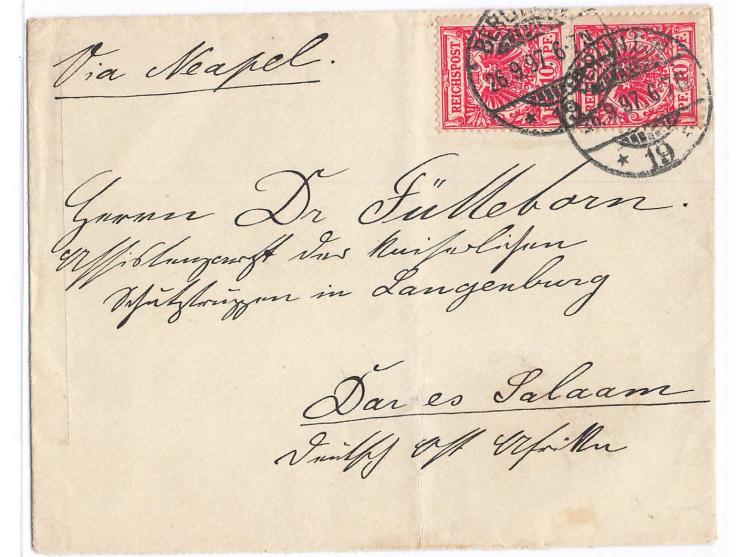 Via Neapel.
REICHSPOST 10 PF.
REICHSPOST 10 PF.
BERLIN
26.9.97. 6-7N
* 19
26.9.97. 6-7N
* 19
Herrn Dr Fülleborn.
Assistenzarzt der Kaiserlichen
Schutztruppen in Langenburg
Dar es Salaam
Deutsch Ost Afrika